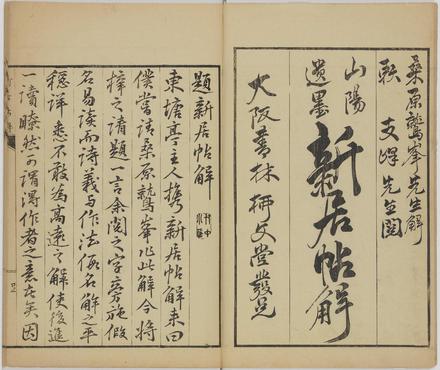 桑原鷲峯先生解
山陽
遺墨
新居帖解
大阪書林 柳文堂發兌
題新居帖解
東塘亭主人携新居帖解来曰
僕嘗請桑原鷲峯作此解今将
梓之請題一言余閲之字旁施假
名易讀而詩義与作法優名解之平
穏詳悉不敢為高遠之解使後進
一讀瞭然可謂得作者之意者矣因